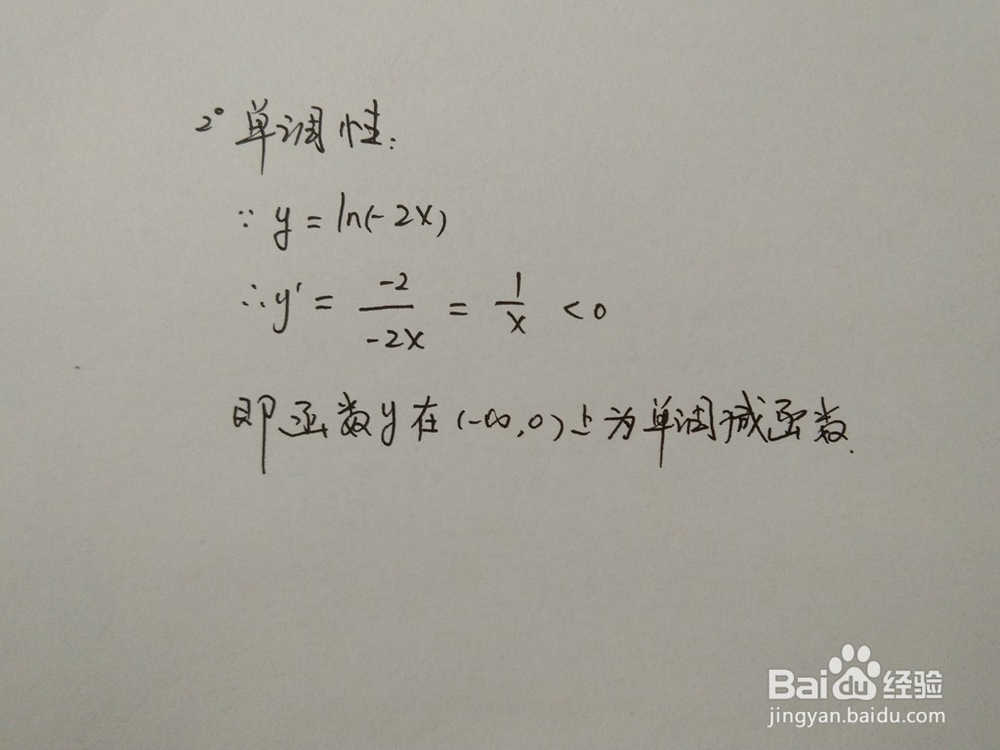 2° 单调性:
∵ y = ln(-2x)
∴ y' = -2/-2x = 1/x < 0
即函数y在(-∞,0)上为单调减函数.
Baidu经验
jingyan.baidu.com